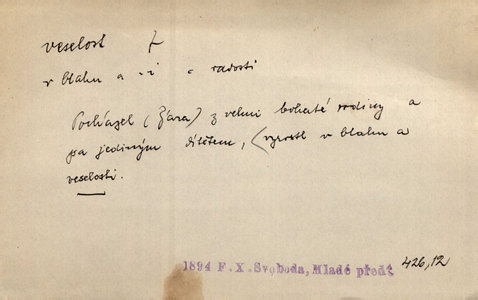 veselost f
v blahu a -i a radosti
Pocházel (Žára) z velmi bohaté rodiny a
jsa jediným dítětem, vyrostl v blahu a
veselosti.
1894 F.X.Svoboda, Mladé před.
426,12